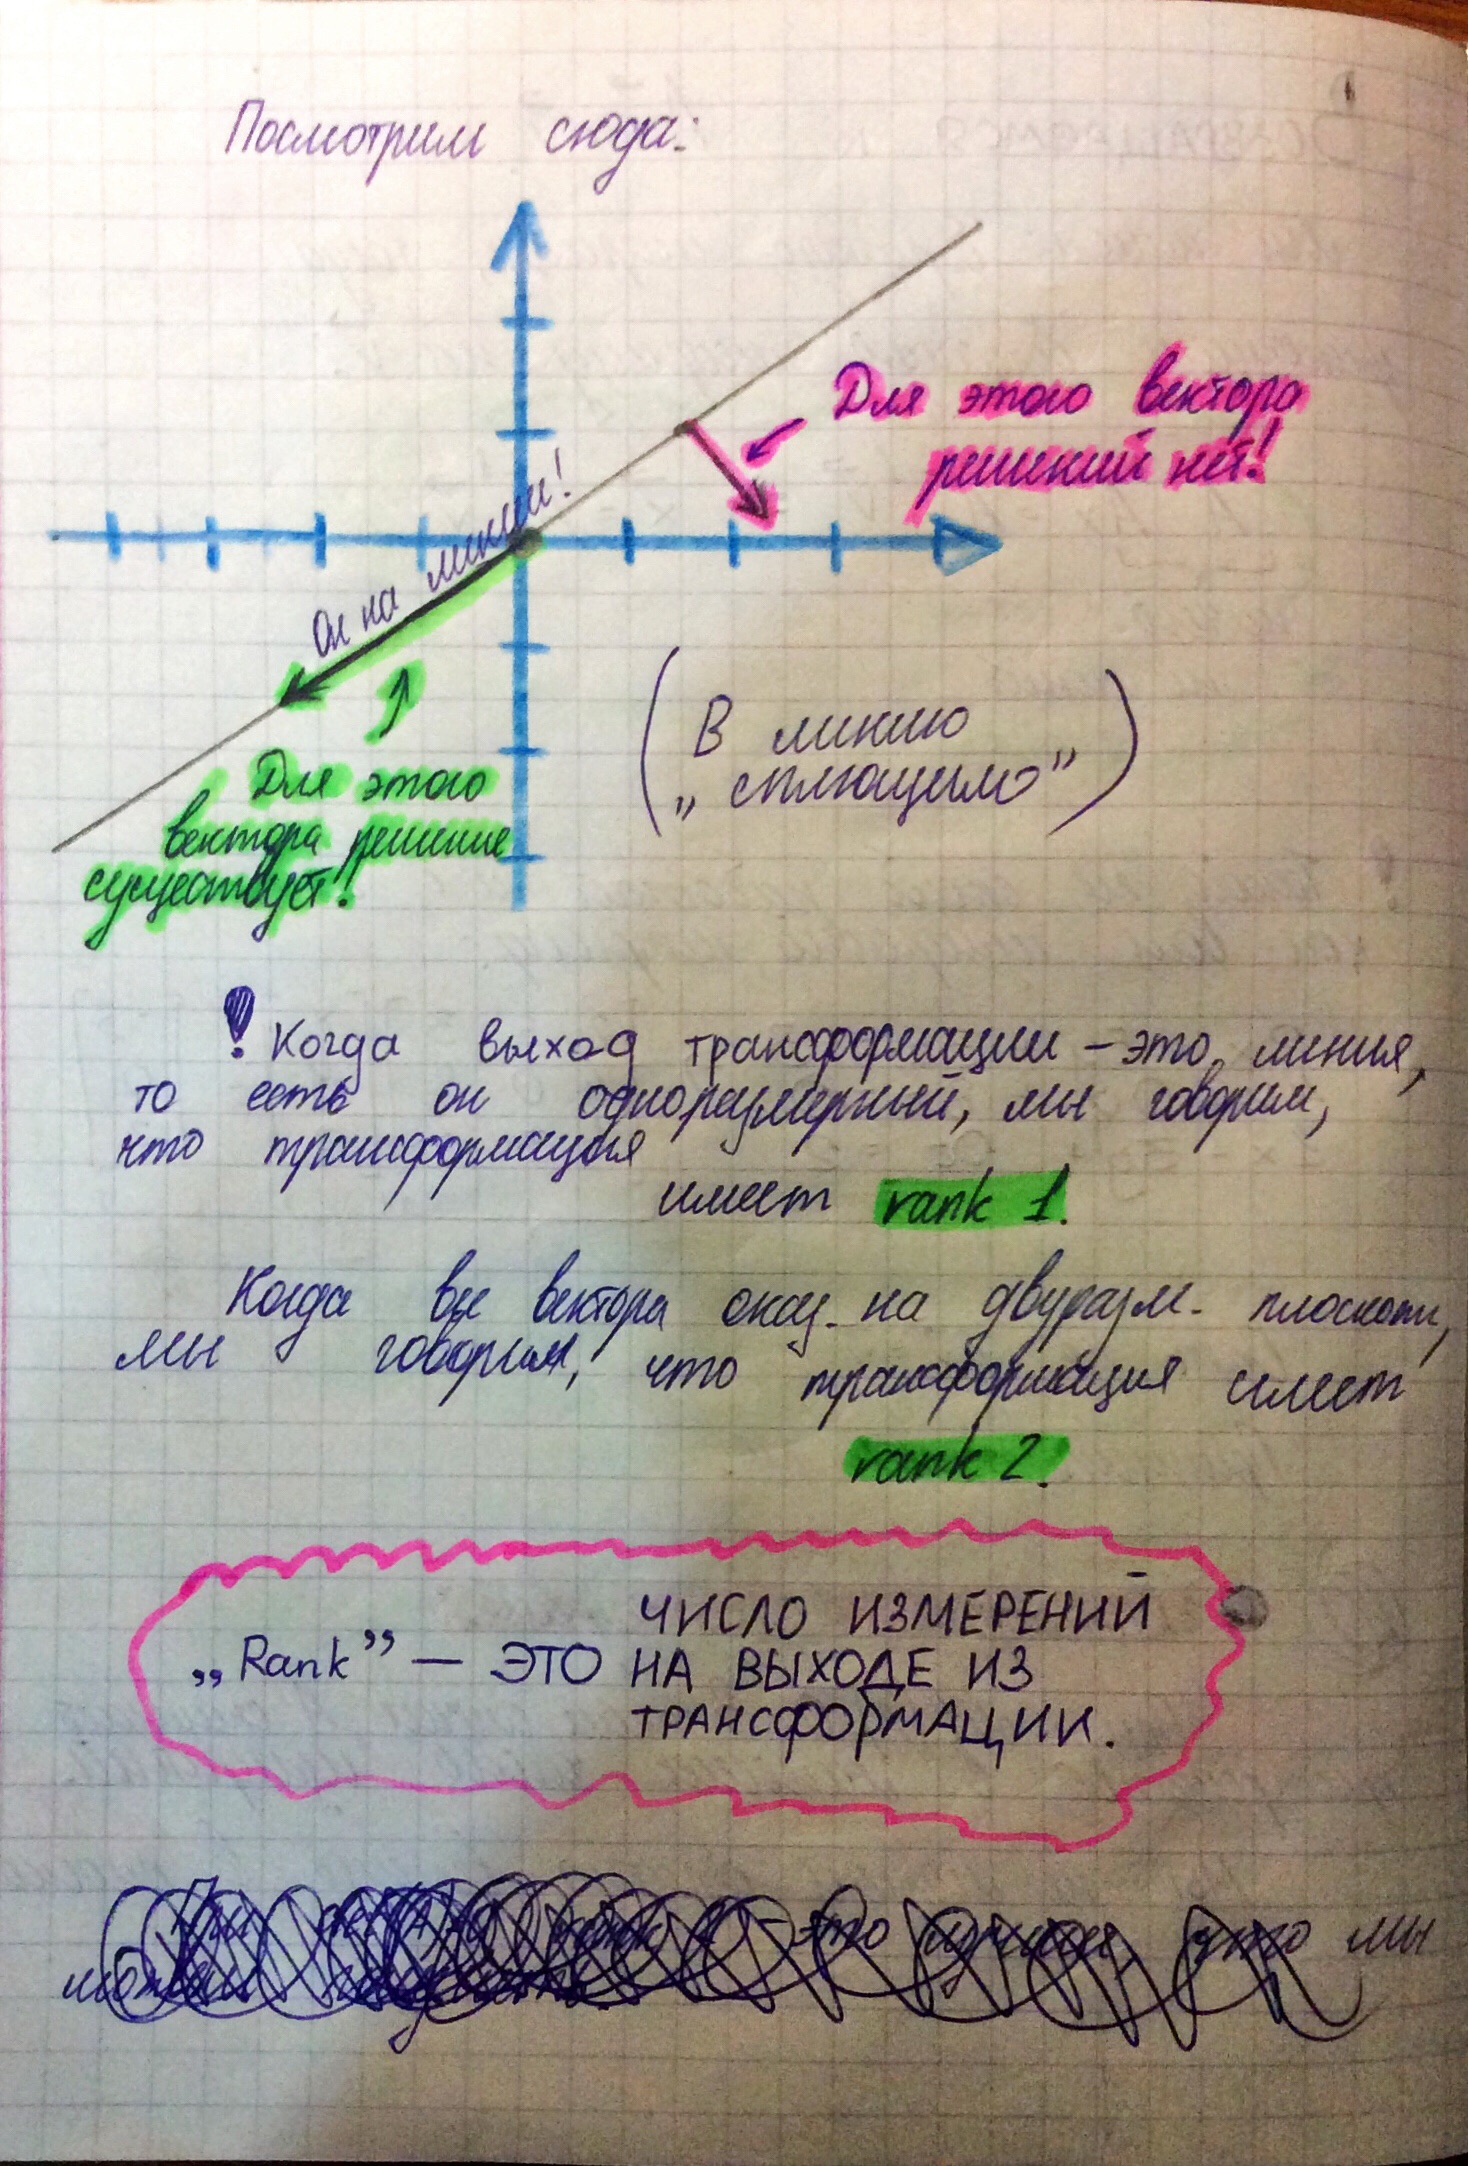 Посмотрим сюда:
Для этого вектора
решений нет!
Он на линии!
(В линию
„сплющило”)
Для этого
вектора решение
существует!
! Когда выход трансформации – это линия,
то есть он одноразмерный, мы говорим,
что трансформация
имеет rank 1.
Когда все вектора оказ. на двуразм. плоскости,
мы говорим, что трансформация имеет
rank 2.
ЧИСЛО ИЗМЕРЕНИЙ
„Rank” — ЭТО НА ВЫХОДЕ ИЗ
ТРАНСФОРМАЦИИ.
это что мы